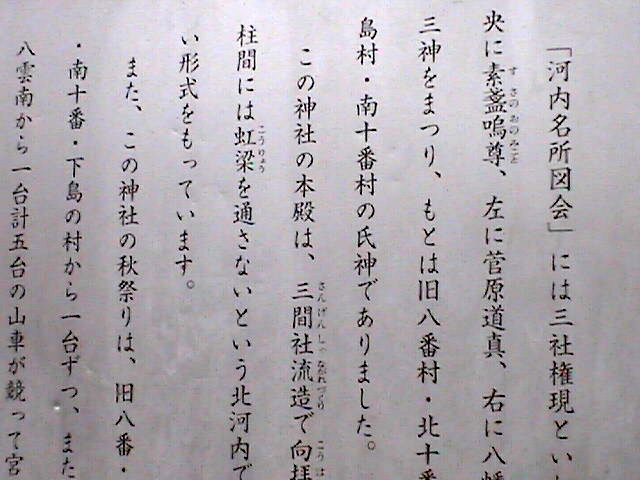 「河内名所図会」には三社権現とい
央に素盞嗚尊、左に菅原道真、右に八幡
三神をまつり、もとは旧八番村・北十番
島村・南十番村の氏神でありました。
この神社の本殿は、三間社流造で向拝
柱間には虹梁を通さないという北河内で
い形式をもっています。
また、この神社の秋祭りは、旧八番・
・南十番・下島の村から一台ずつ、また
八雲南から一台計五台の山車が競って宮